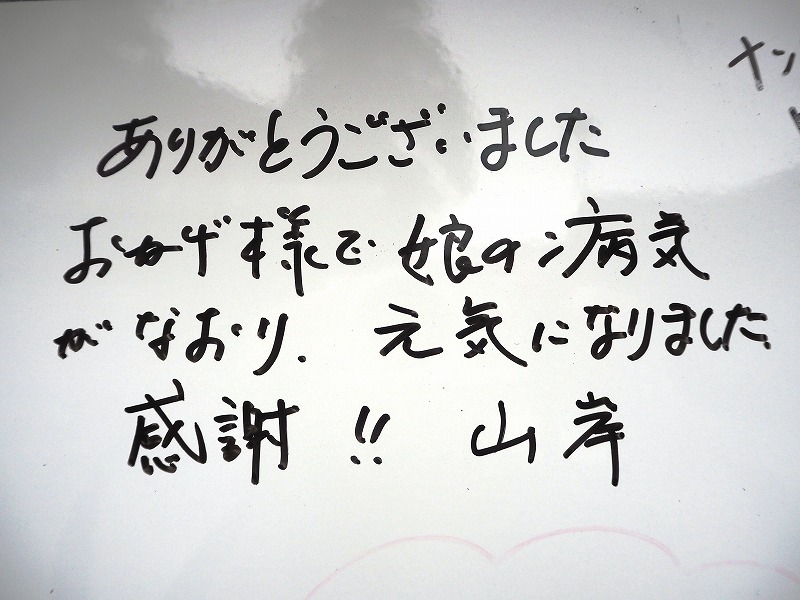 ありがとうございました
おかげ様で 娘の病気
がなおり. 元気になりました
感謝!! 山岸